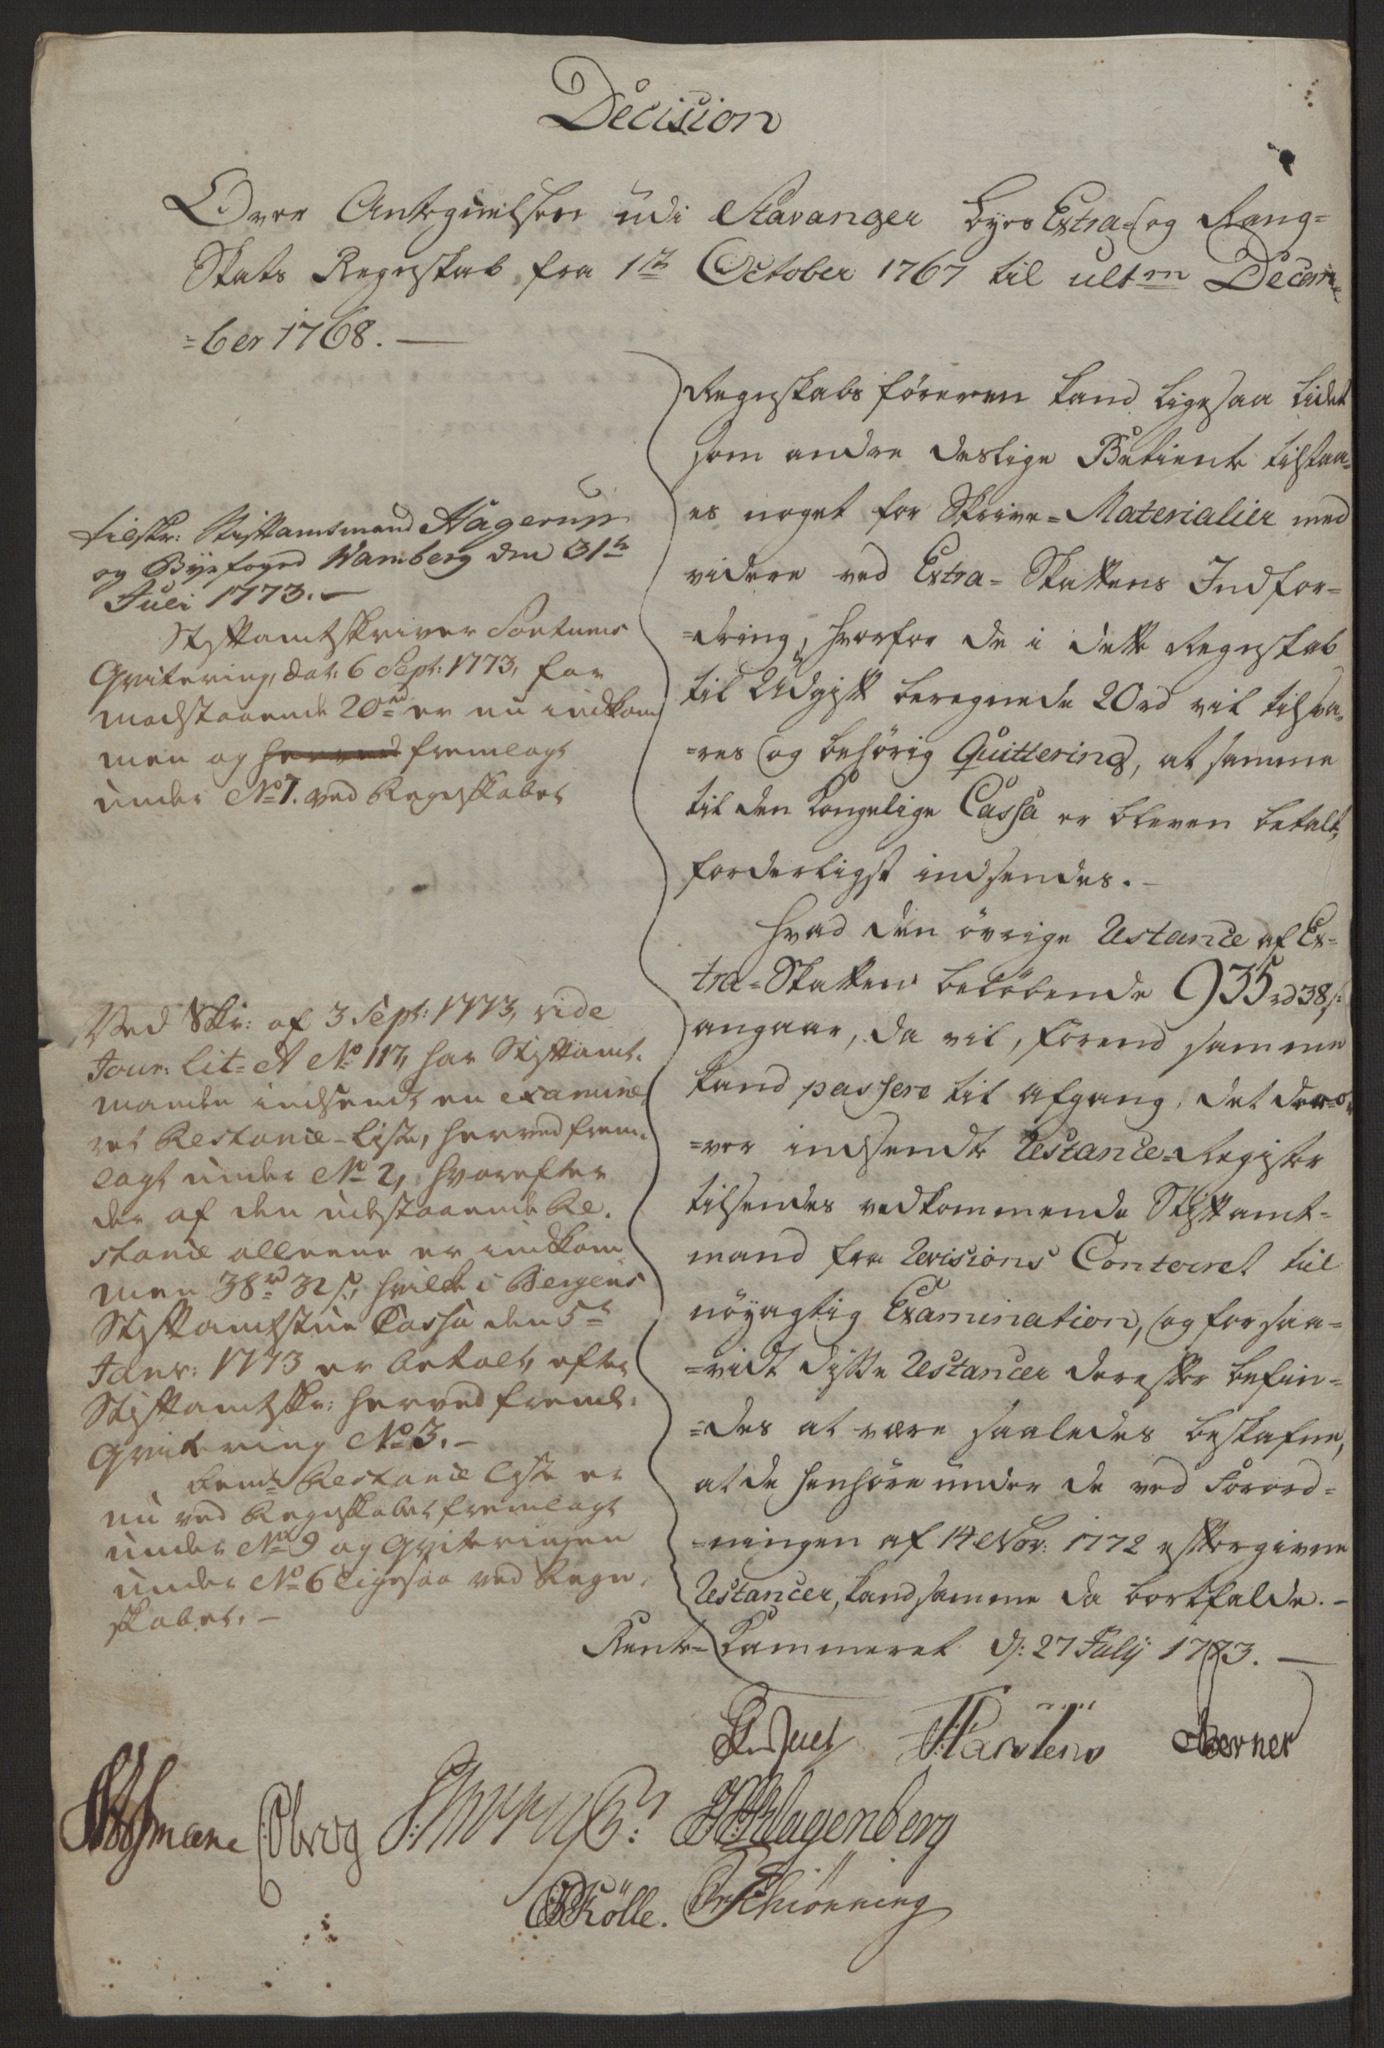 Decision
Over Antegnelserne udi Stavanger Byes Extra- og Rang-
Skats Regnskab fra 1ste October 1767 til ultm Decem-
=ber 1768. —
Regnskabsføreren kand ligesaa lidet
som andre deslige Betiente tilstaa-
es noget for Skrive-Materialier med
videre ved Extra-Skattens Indfor-
=dring, hvorfor de i dette Regnskab
til Udgift beregnede 20rd vil tilsva-
=res og behörig Quittering, at samme
til den Kongelige Cassa er bleven betalt,
forderligst indsendes. –
Hvad den övrige Restance af Ex-
tra-Skatten beløbende 935rd 38s:
angaar, da vil, forend samme
kand passere til Afgang, det dero-
=ver indsendte Restance-Register
tilsendes vedkommende Stiftamt-
mand fra Revisions Contoiret til
nöyagtig Examination, og forsaa-
=vidt disse Restancer derefter befin-
=des at være saaledes beskafne,
at de henhöre under de ved Forord-
=ningen af 14 Nov: 1772 eftergivne
Restancer, kand samme da bortfalde. –
Rente-Kammeret d: 27 Julij 1773. —
Juel Karstens Berner
Obrog Klagenberg
Kölle. Schiönning
tilskr: Stiftamtmand Hagerup
og Byefoged Wamberg den 31te
Juli 1773. –
Stiftamtskriver
Qvitering, dat: 6 Sept: 1773, for
modstaaende 20rd er nu indkom
men og herved fremlagt
under No 7. ved Regnskabet
Ved Skr: af 3 Sept: 1773, vide
Jour: Lit: A No 117, har Stiftamt-
manden indsendt en examine-
ret Restance-Liste, herved frem-
lagt under No 2, hvorefter
der af den udestaaende Re-
stance alleene er indkom
men 38rd 32s:, hvilke i Bergens
Stiftamtstue Cassa den 5te
Janv: 1773 er betalt, efter
Stiftamtskr: herved freml:
Qvitering No 3. –
bemte Restance Liste er
nu ved Regnskabet fremlagt
under No 9 og Qviteringen
under No 6 ligesaa ved Regn-
skabet. –